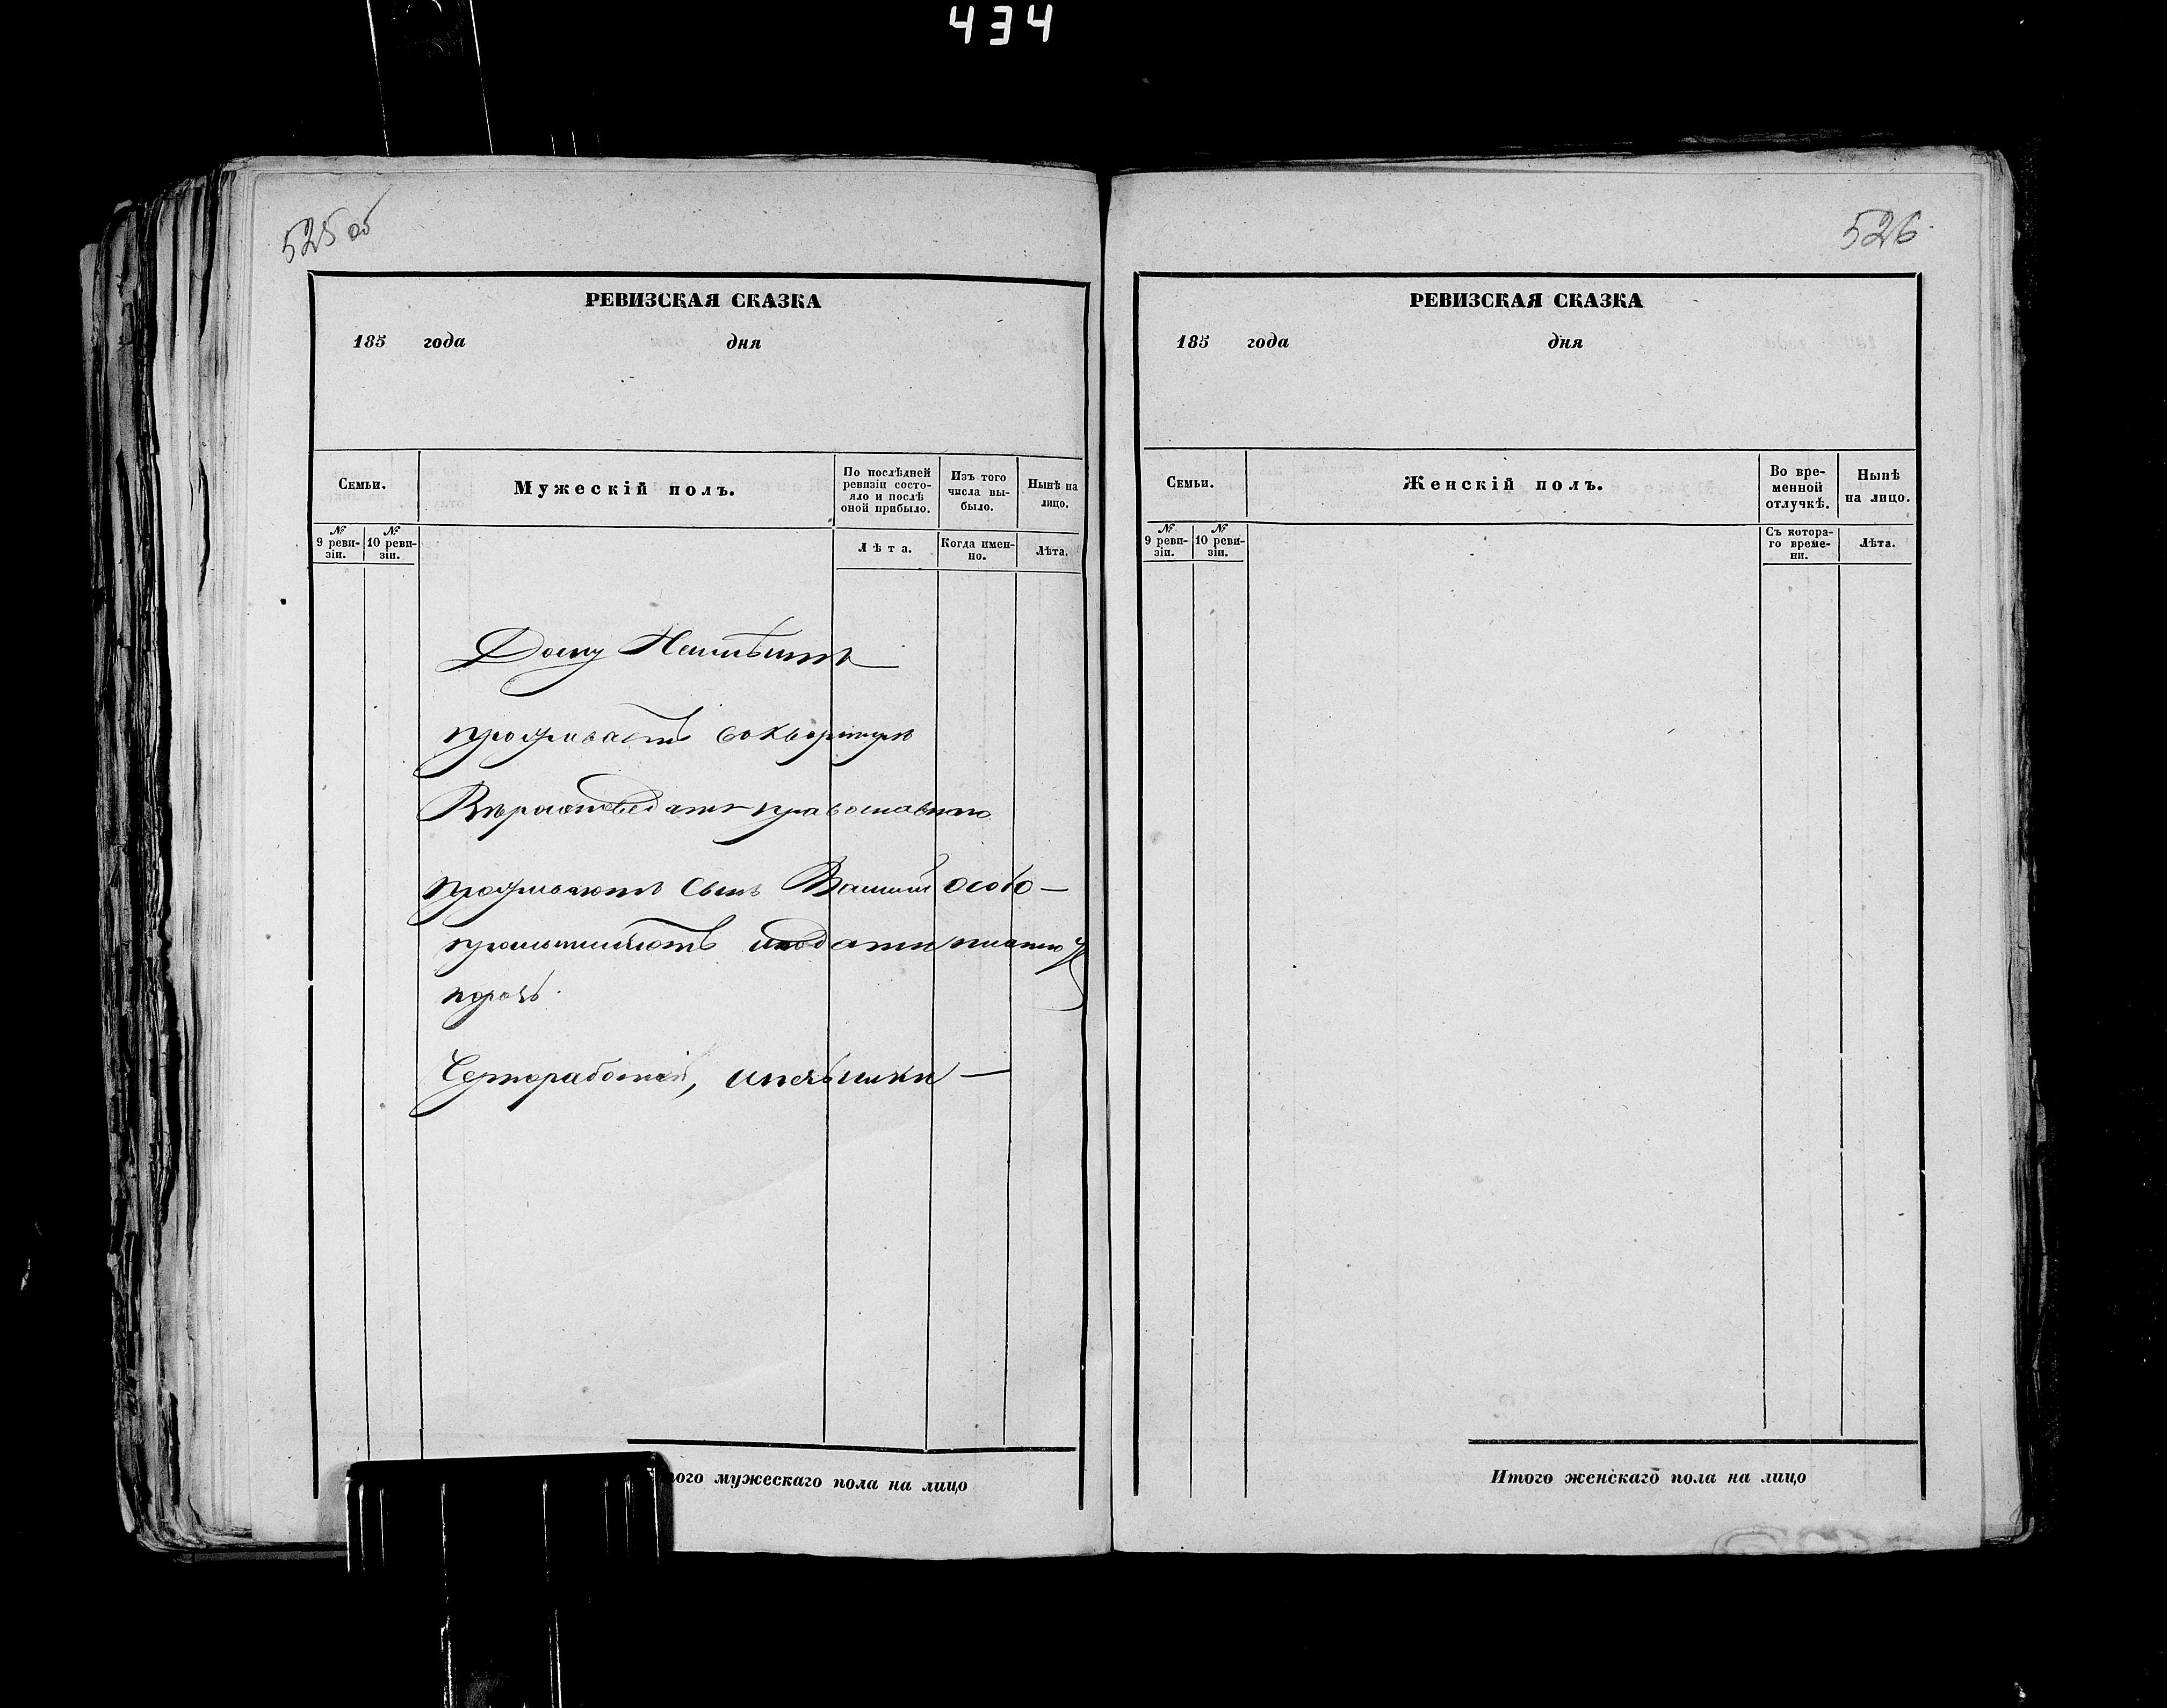 434
525 об
РЕВИЗСКАЯ СКАЗКА
185 года дня
Семьи.
Мужескій полъ.
По послѣдней ревизіи состояло и послѣ оной прибыло.
Изъ того числа выбыло.
Нынѣ на лицо.
№ 9 ревизіи.
№ 10 ревизіи.
Лѣта.
Когда именно.
Лѣта.
Дому
проживаетъ воквартире
православнаго
проживаютъ сынъ особо —
Чернорабочий,
ого мужескаго пола на лицо
526
РЕВИЗСКАЯ СКАЗКА
185 года дня
Семьи.
Женскій полъ.
Во временной отлучкѣ.
Нынѣ на лицо.
№ 9 ревизіи.
№ 10 ревизіи.
Съ котораго времени.
Лѣта.
Итого женскаго пола на лицо